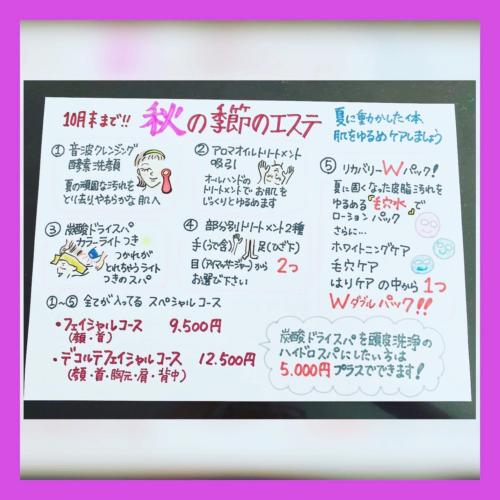 10月末まで!! 秋の季節のエステ
夏に動かした体、
肌をゆるめケアしましょう
① 音波クレンジング
酵素洗顔
夏の頑固な汚れを
とり去り、やわらかな肌へ
② アロマオイルトリートメント
吸引
オールハンドの
トリートメントでお肌を
じっくりとゆるめます
③ 炭酸ドライスパ
カラーライトつき
つかれが
とれちゃうライト
つきのスパ
④ 部分別トリートメント2種
手(うで含) 足(ひざ下)
目(アイマッサージャー)から 2つ
お選び下さい
⑤ リカバリーWパック!
夏に固くなった皮脂汚れを
ゆるめる"毛穴水"で
ローションパック
さらに…
ホワイトニングケア
毛穴ケア
はりケアの中から1つ
Wダブルパック!!
①~⑤ 全てが入ってる スペシャルコース
・フェイシャルコース 9.500円
(顔・首)
・デコルテフェイシャルコース 12.500円
(顔・首・胸元・肩・背中)
炭酸ドライスパを頭皮洗浄の
ハイドロスパにしたい方は
5.000円プラスでできます!